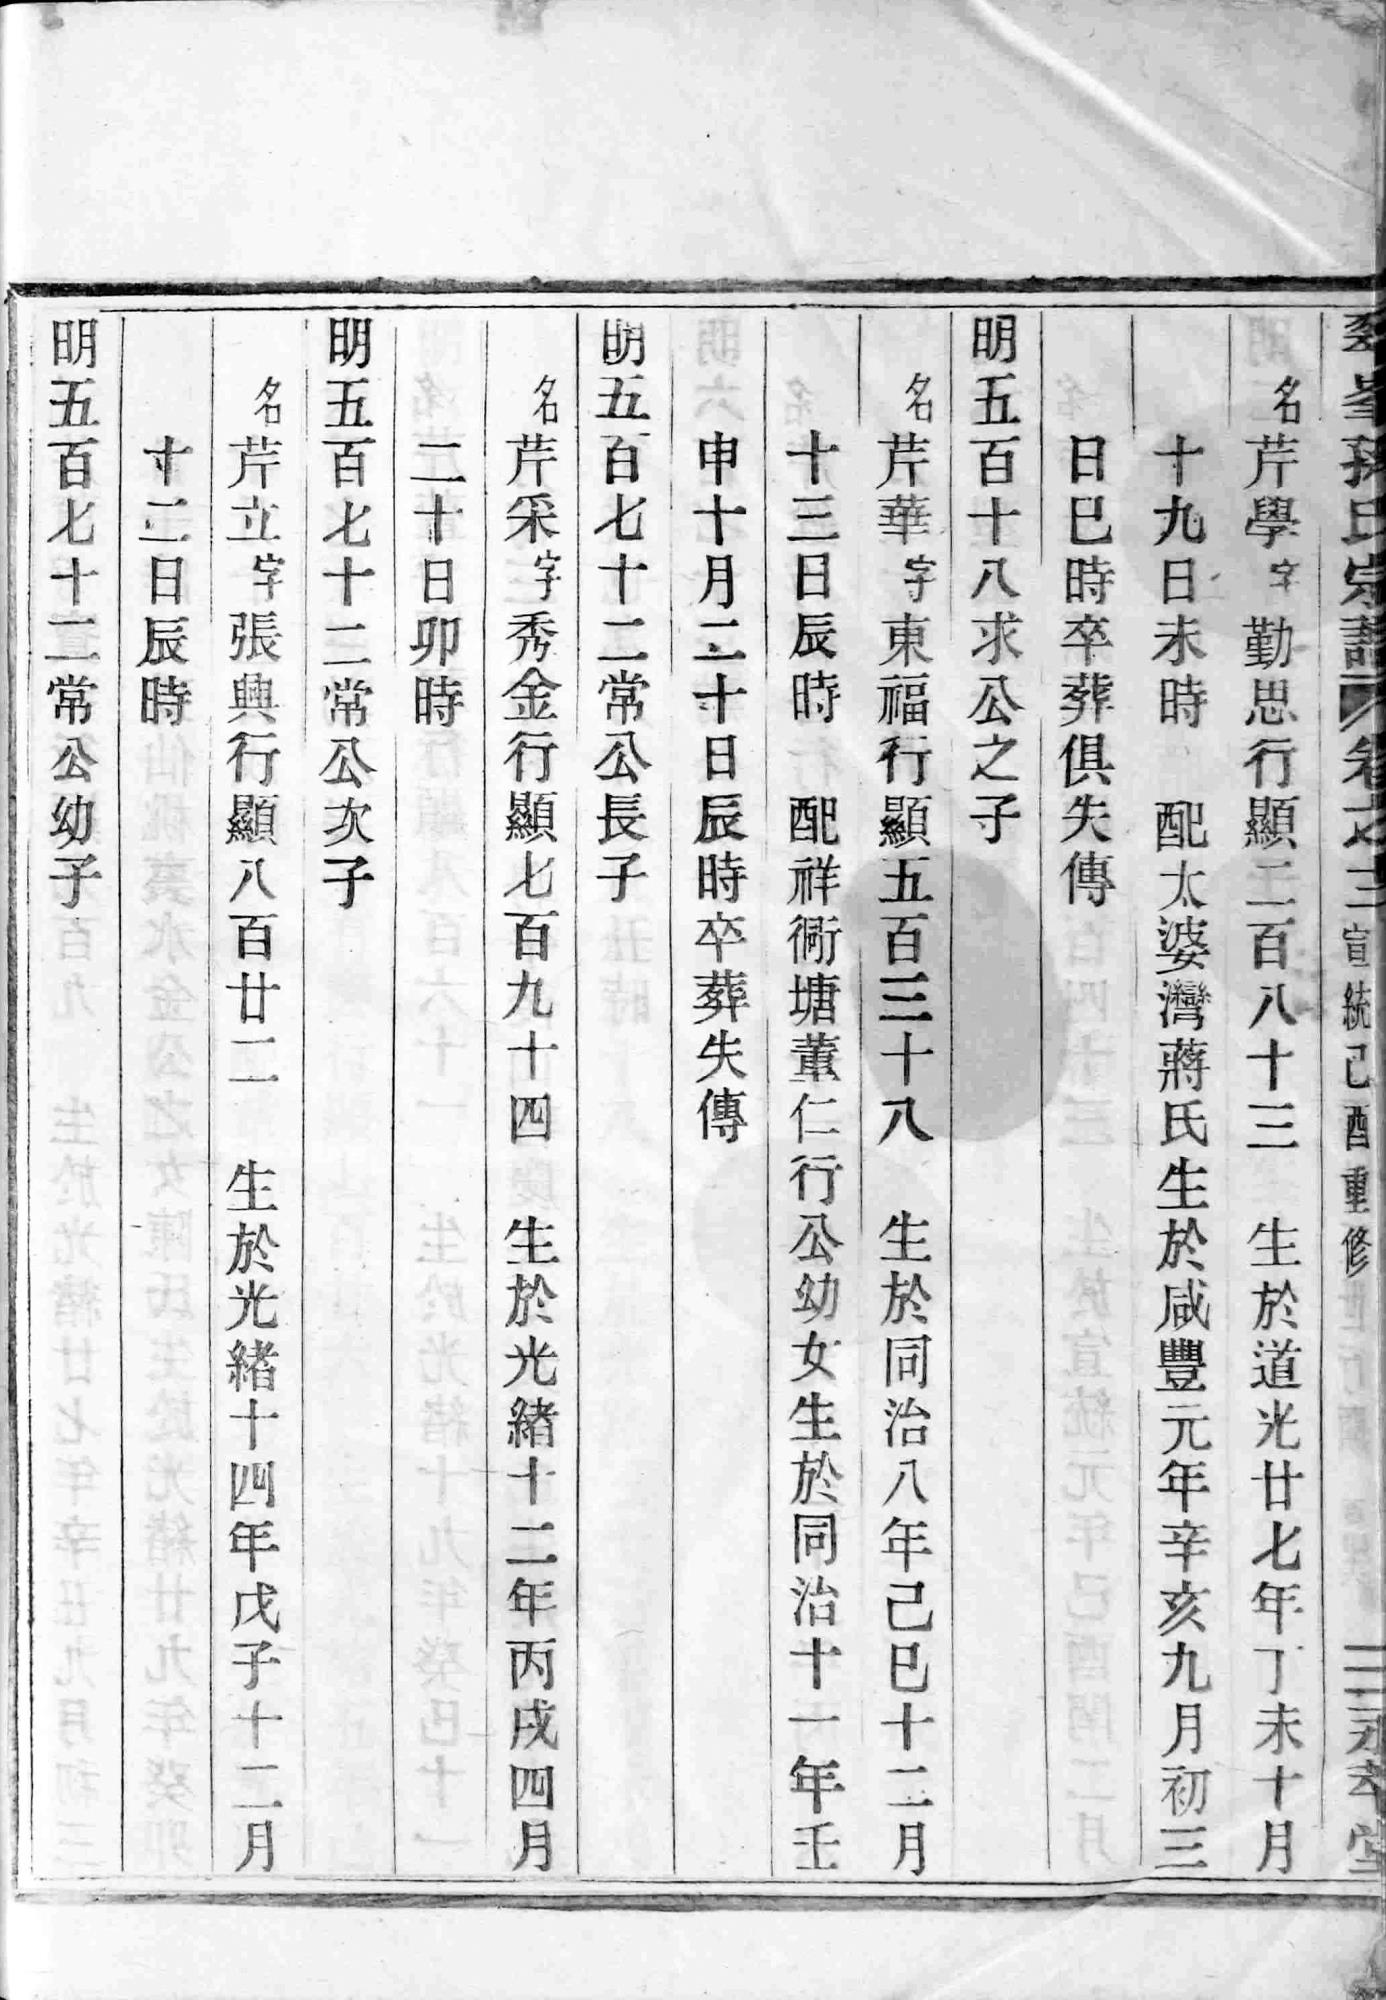 孫氏宗譜 卷之三 宣統己酉重修
名芹學字勤思行顯二百八十三 生於道光廿七年丁未十月
十九日未時 配太婆灣蔣氏生於咸豐元年辛亥九月初三
日巳時卒葬俱失傳
明五百十八求公之子
名芹華字東福行顯五百三十八 生於同治八年己巳十二月
十三日辰時 配祥衕塘董仁行公幼女生於同治十一年壬
申十月二十日辰時卒葬失傳
明五百七十二常公長子
名芹采字秀金行顯七百九十四 生於光緒十二年丙戌四月
二十日卯時
明五百七十二常公次子
名芹立字張興行顯八百廿二 生於光緒十四年戊子十二月
十二日辰時
明五百七十二常公幼子